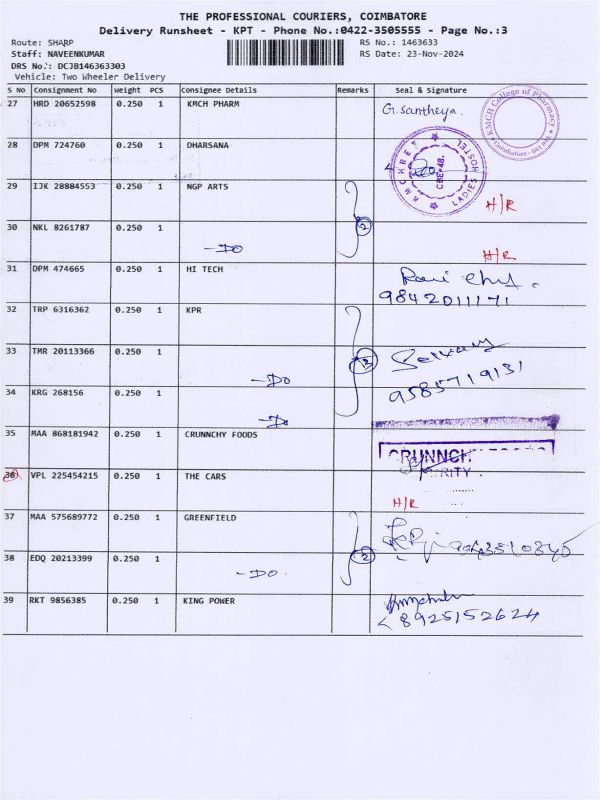 THE PROFESSIONAL COURIERS, COIMBATORE
Delivery Runsheet - KPT - Phone No.:0422-3505555 - Page No.:3
Route: SHARP
RS No.: 1463633
Staff: NAVEENKUMAR
RS Date: 23-Nov-2024
DRS No.: DCJB146363303
Vehicle: Two Wheeler Delivery
S No Consignment No Weight PCS Consignee Details Remarks Seal & Signature
27 HRD 20652598 0.250 1 KMCH PHARM G. Santheya.
KMCH College of Pharmacy
Coimbatore
28 DPM 724760 0.250 1 DHARSANA
LADIES HOSTEL
CBE-48.
29 IJK 28884553 0.250 1 NGP ARTS 2 H/R
30 NKL 8261787 0.250 1 -Do H/R
31 DPM 474665 0.250 1 HI TECH
9842011171
32 TRP 6316362 0.250 1 KPR 3
33 TMR 20113366 0.250 1 -Do
9585719131
34 KRG 268156 0.250 1 -Do
35 MAA 868181942 0.250 1 CRUNNCHY FOODS
36 VPL 225454215 0.250 1 THE CARS H/R
37 MAA 575689772 0.250 1 GREENFIELD 2
38 EDQ 20213399 0.250 1 -Do.
39 RKT 9856385 0.250 1 KING POWER
8925152624